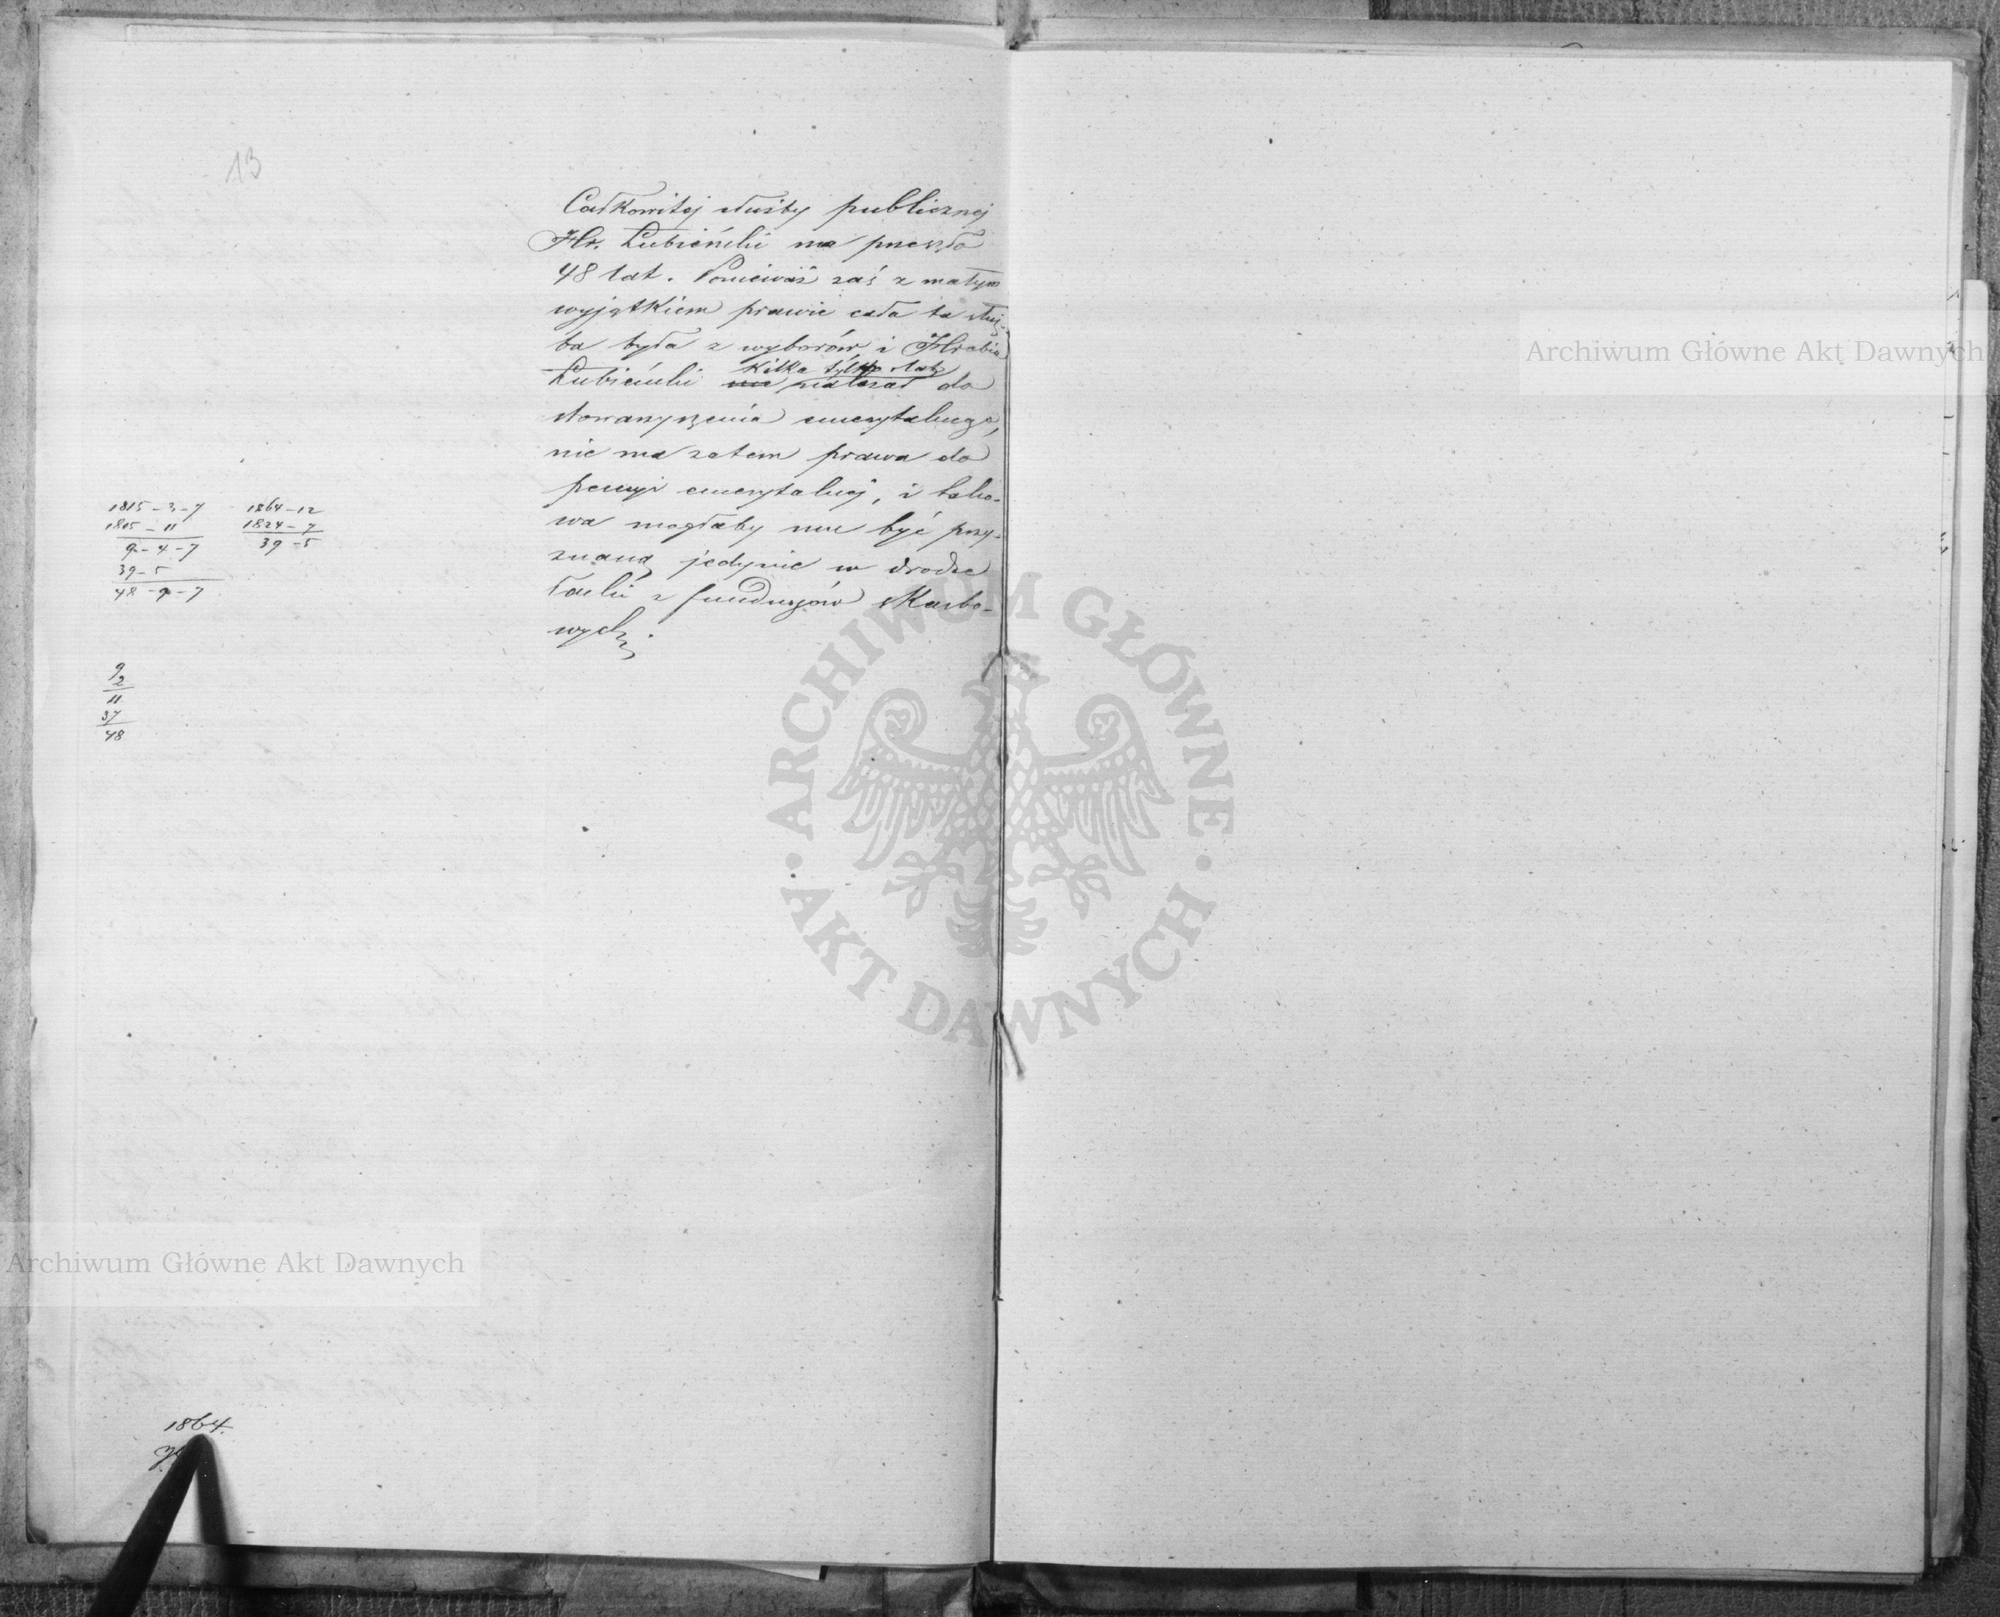 13
Całkowitej służby publicznej
Hr. Łubieński ma przeszło
48 lat. Ponieważ zaś z małym
wyjątkiem prawie cała ta służ-
ba była z wyborów i Hrabia
kilka tylko lat
Łubieński nie należał do
stowarzyszenia emerytalnego,
nie ma zatem prawa do
pensyi emerytalnej, i tako-
wa mogłaby mu być przy-
znaną jedynie w drodze
łaski z funduszów Skarbo-
wych.
1815-3-7
1805-11
9-4-7
39-5
48-9-7
1864-12
1824-7
39-5
9
2
11
37
48
1864.
Archiwum Główne Akt Dawnych
Archiwum Główne Akt Dawnych
ARCHIWUM GŁÓWNE
AKT DAWNYCH